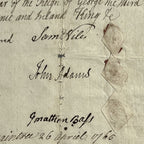 ar of the Reign of George the third
and Ireland King &c
and Sam Niles
John Adams
Jonathan Bass
Braintree 26 April 1765